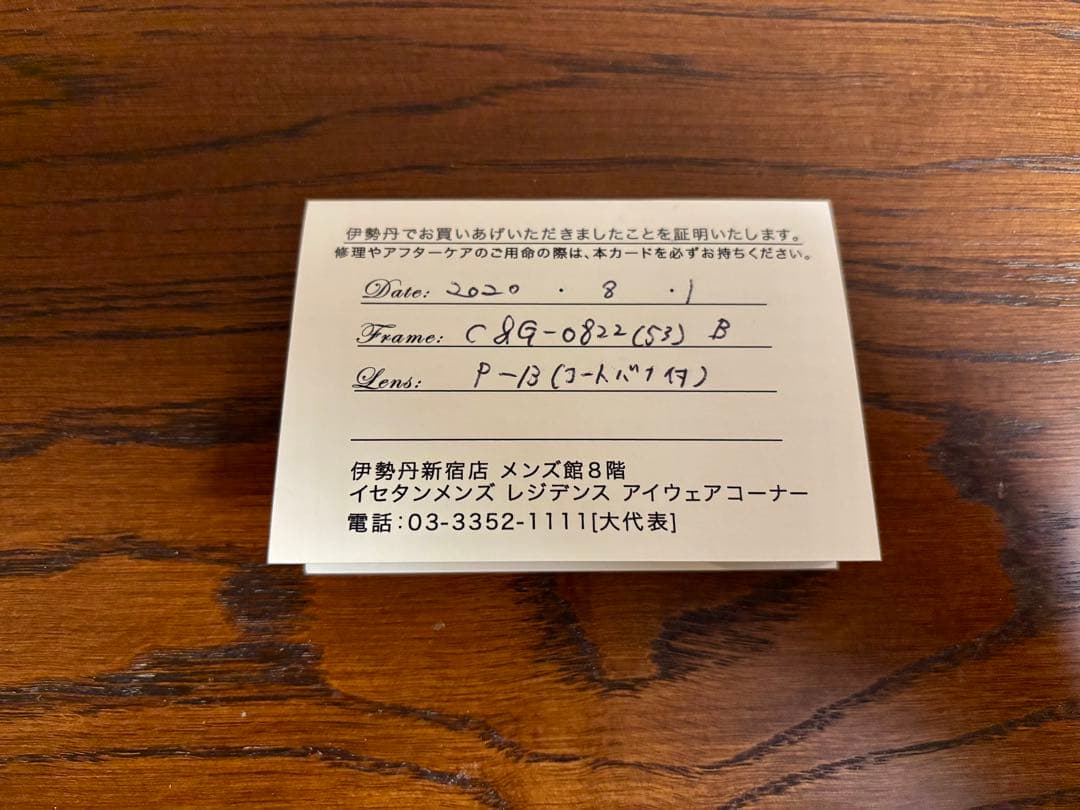 伊勢丹でお買いあげいただきましたことを証明いたします。
修理やアフターケアのご用命の際は、本カードを必ずお持ちください。
Date: 2020 ・ 8 ・1
Frame: C&G-0822(53) B
Lens: P-13(コードバナイタ)
伊勢丹新宿店 メンズ館8階
イセタンメンズ レジデンス アイウェアコーナー
電話:03-3352-1111[大代表]